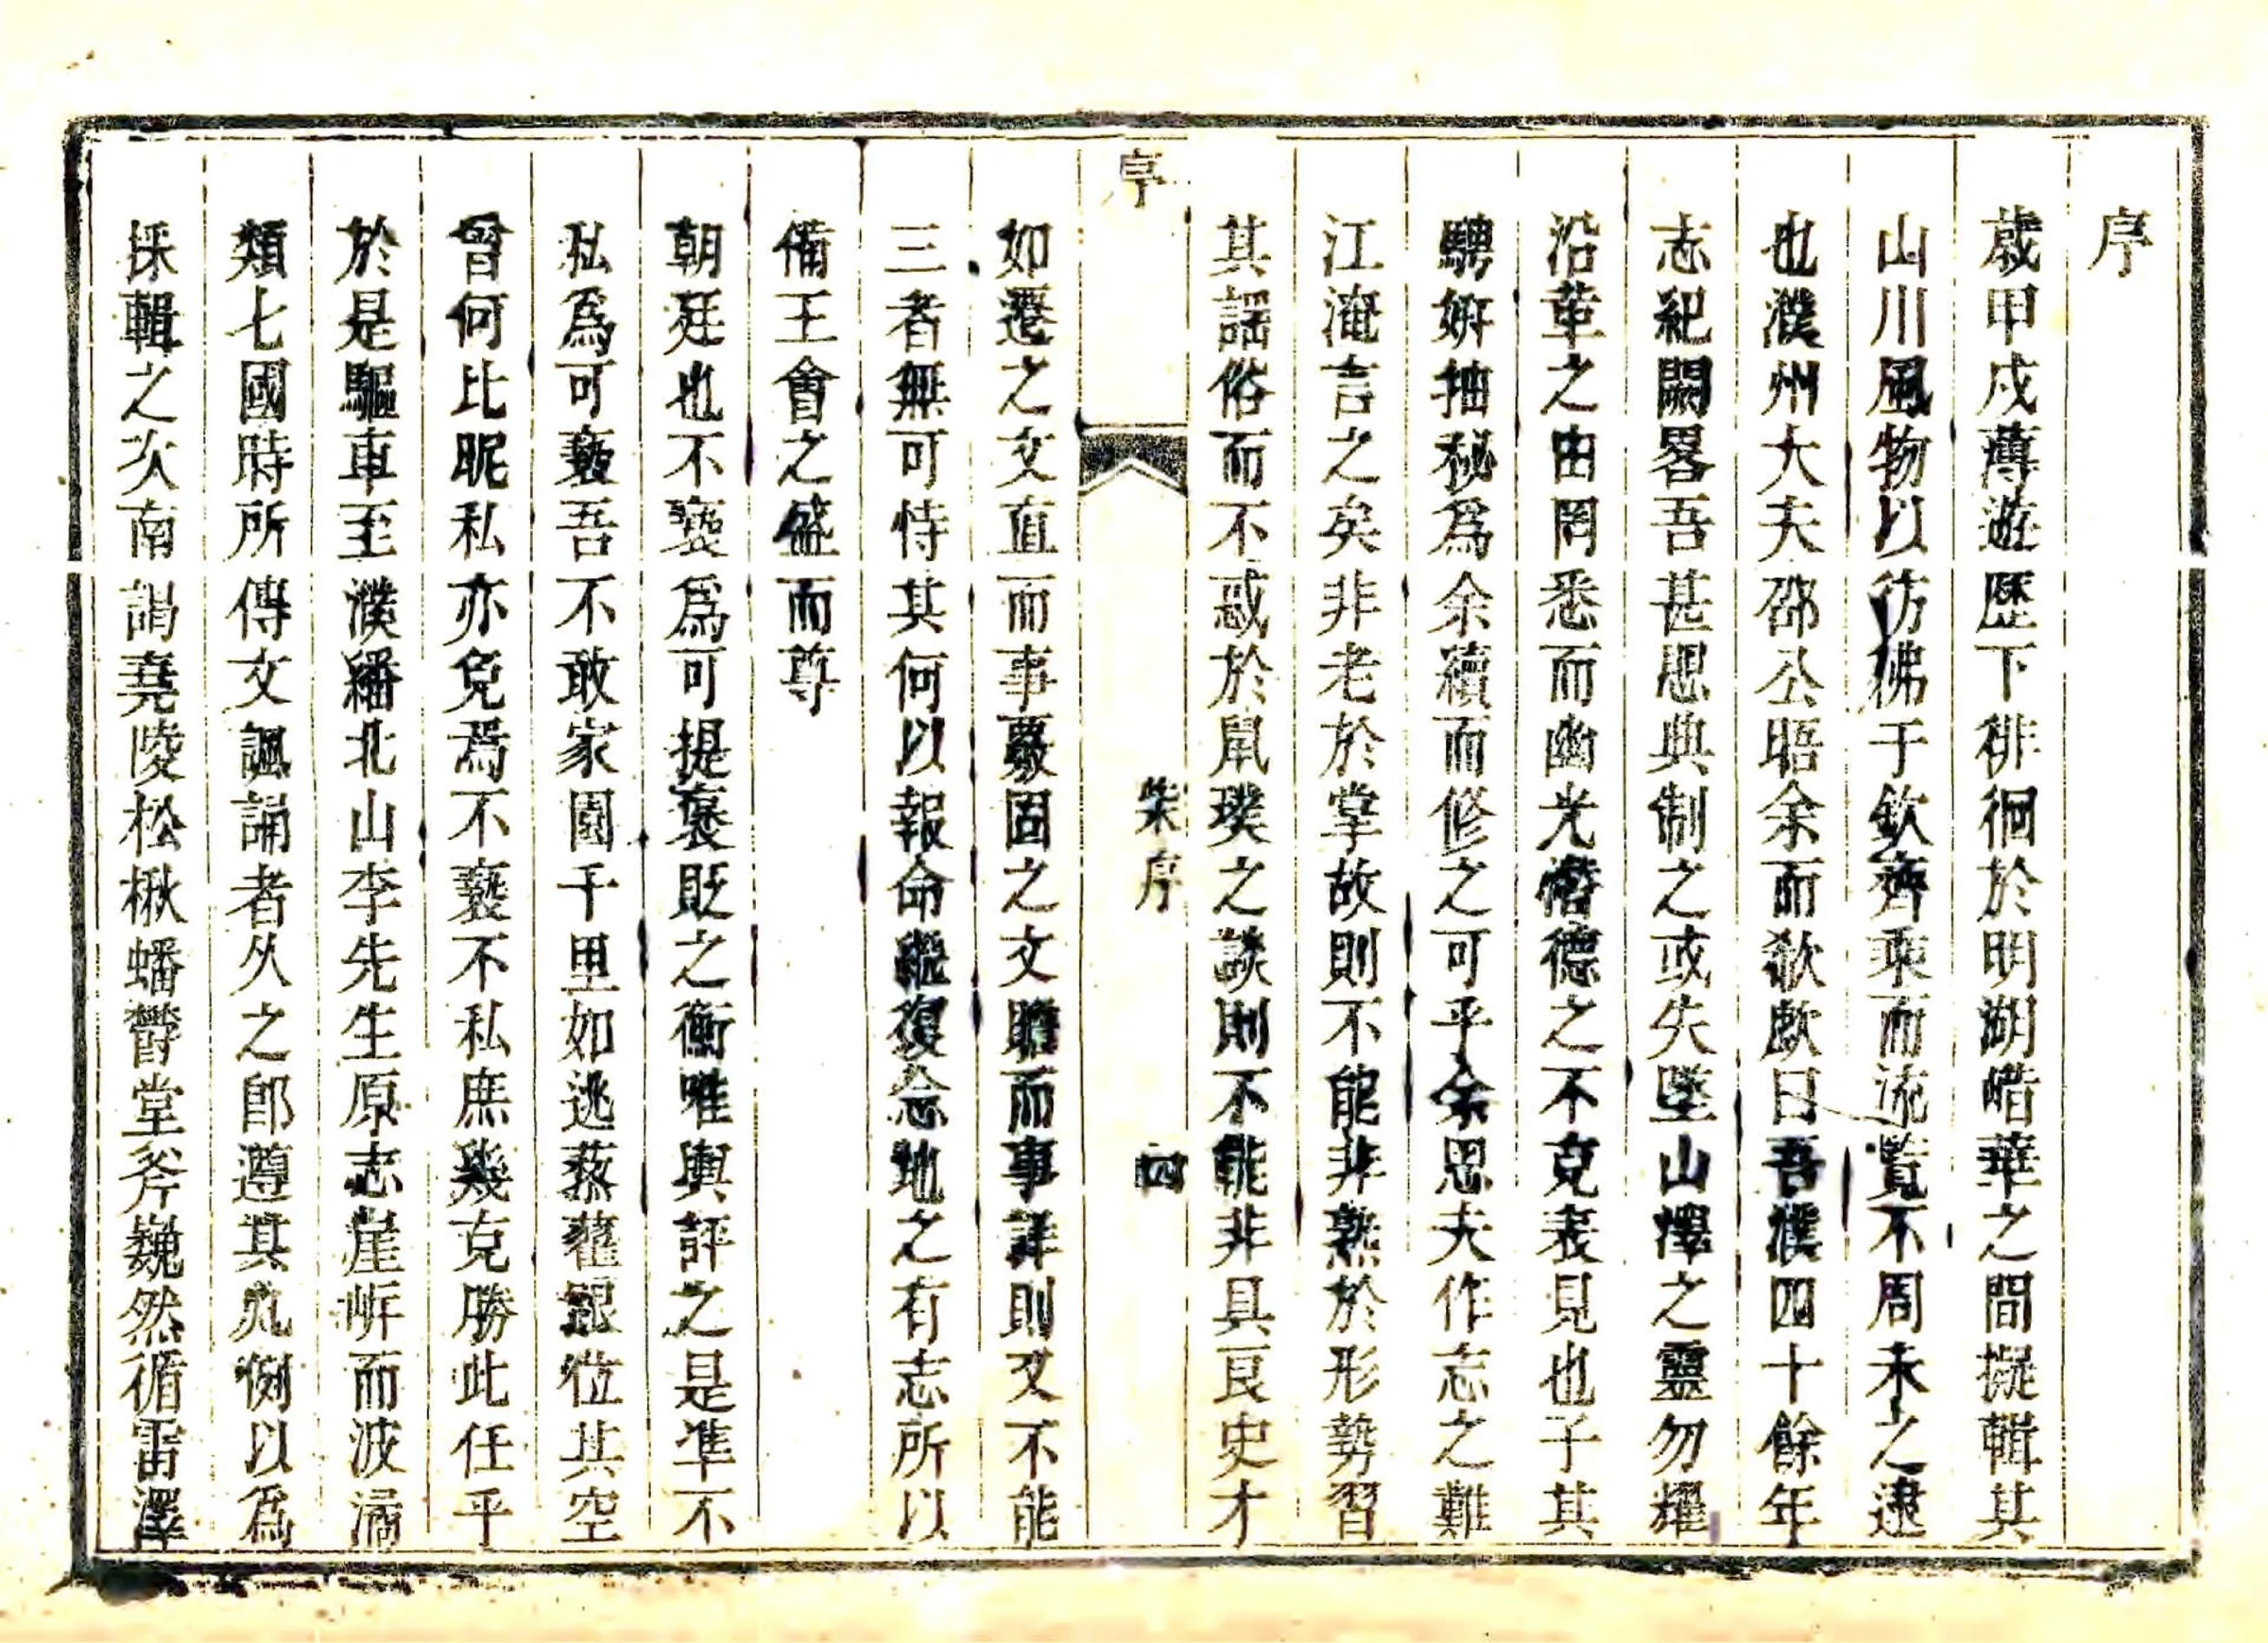 序
歲甲戌薄遊歷下徘徊於明湖嶖華之間擬輯其
山川風物以彷彿于欽齊乘而流覧不周未之逮
也濮州大夫邵公晤余而欷歔曰吾濮四十餘年
志紀闕畧吾甚思典制之或失墜山澤之靈勿耀
沿革之由罔悉而幽光潛德之不克表見也子其
騁妍抽秘爲余續而修之可乎余思夫作志之難
江淹言之矣非老於掌故則不能非熟於形勢習
其謡俗而不惑於鼠璞之談則不能非具良史才
序 柴序 四
如遷之文直而事覈固之文贍而事詳則又不能
三者無可恃其何以報命繼復念地之有志所以
備王會之盛而尊
朝廷也不褻爲可提褒貶之衡唯輿評之是準不
私爲可褻吾不敢家園千里如逃蔡藋鼪位其空
曾何比昵私亦免焉不褻不私庶幾克勝此任乎
於是驅車至濮繙北山李先生原志崖㟁而波潏
類七國時所傳文諷誦者久之卽遵其凡例以爲
採輯之次南謁堯陵松楸蟠鬱堂斧巍然循雷澤